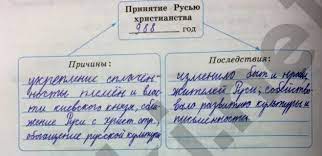 Принятие Русью
христианства
988 год
Причины:
укрепление сплочён-
ности племён и влас-
ти киевского князя, сбли-
жение Руси с христ.
обогащение русской культуры
Последствия:
изменило быт и нравы
жителей Руси; содейство-
вало развитию культуры и
письменности